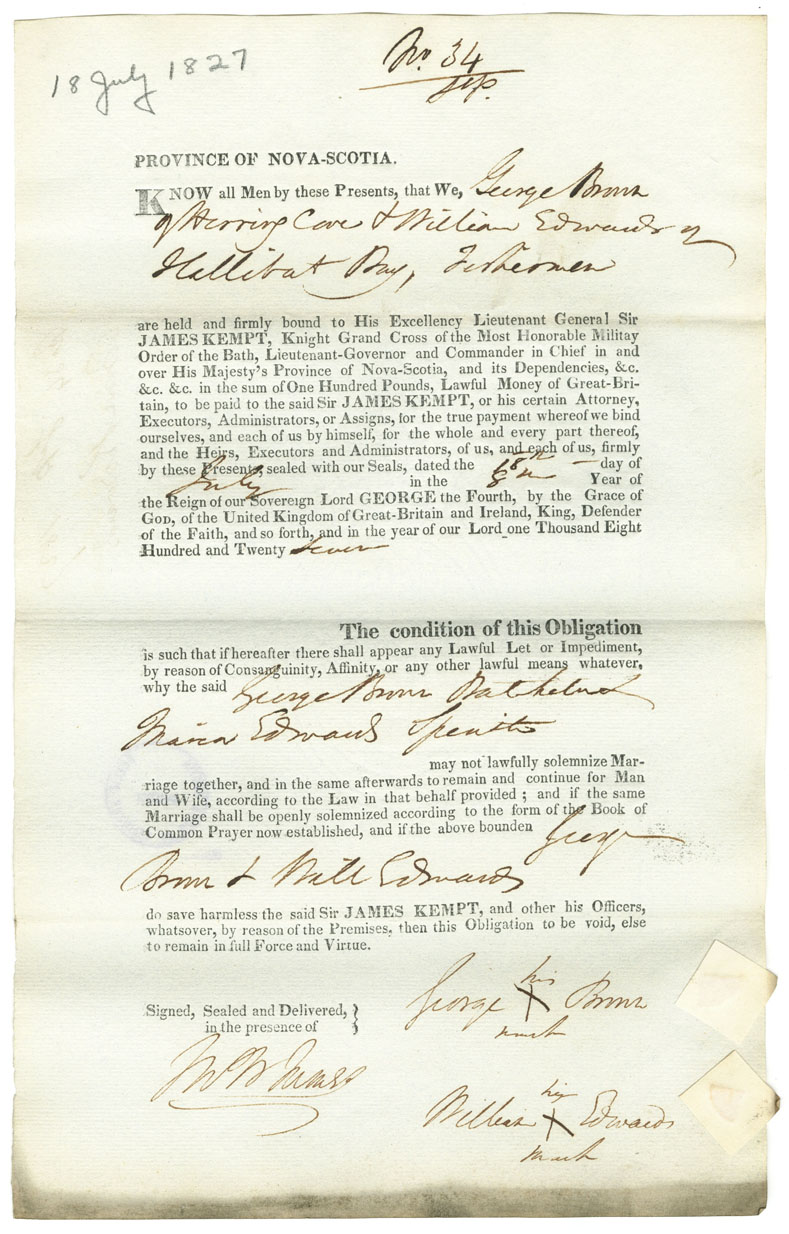 18 July 1827
No. 34
PROVINCE OF NOVA-SCOTIA.
KNOW all Men by these Presents, that We, George Brown
of Herring Cove & William Edwards of
Hallibat Bay, Fishermen
are held and firmly bound to His Excellency Lieutenant General Sir
JAMES KEMPT, Knight Grand Cross of the Most Honorable Militay
Order of the Bath, Lieutenant-Governor and Commander in Chief in and
over His Majesty's Province of Nova-Scotia, and its Dependencies, &c.
&c. &c. in the sum of One Hundred Pounds, Lawful Money of Great-Bri-
tain, to be paid to the said Sir JAMES KEMPT, or his certain Attorney,
Executors, Administrators, or Assigns, for the true payment whereof we bind
ourselves, and each of us by himself, for the whole and every part thereof,
and the Heirs, Executors and Administrators, of us, and each of us, firmly
by these Presents, sealed with our Seals, dated the 18th day of
July in the 8th Year of
the Reign of our Sovereign Lord GEORGE the Fourth, by the Grace of
GOD, of the United Kingdom of Great-Britain and Ireland, King, Defender
of the Faith, and so forth, and in the year of our Lord one Thousand Eight
Hundred and Twenty seven
The condition of this Obligation
is such that if hereafter there shall appear any Lawful Let or Impediment,
by reason of Consanguinity, Affinity, or any other lawful means whatever,
why the said George Brown Batchelor &
Maria Edwards Spinster
may not lawfully solemnize Mar-
riage together, and in the same afterwards to remain and continue for Man
and Wife, according to the Law in that behalf provided ; and if the same
Marriage shall be openly solemnized according to the form of the Book of
Common Prayer now established, and if the above bounden George
Brown & Will Edwards
do save harmless the said Sir JAMES KEMPT, and other his Officers,
whatsover, by reason of the Premises, then this Obligation to be void, else
to remain in full Force and Virtue.
Signed, Sealed and Delivered,
in the presence of
George his X mark Brown
William his X mark Edwards